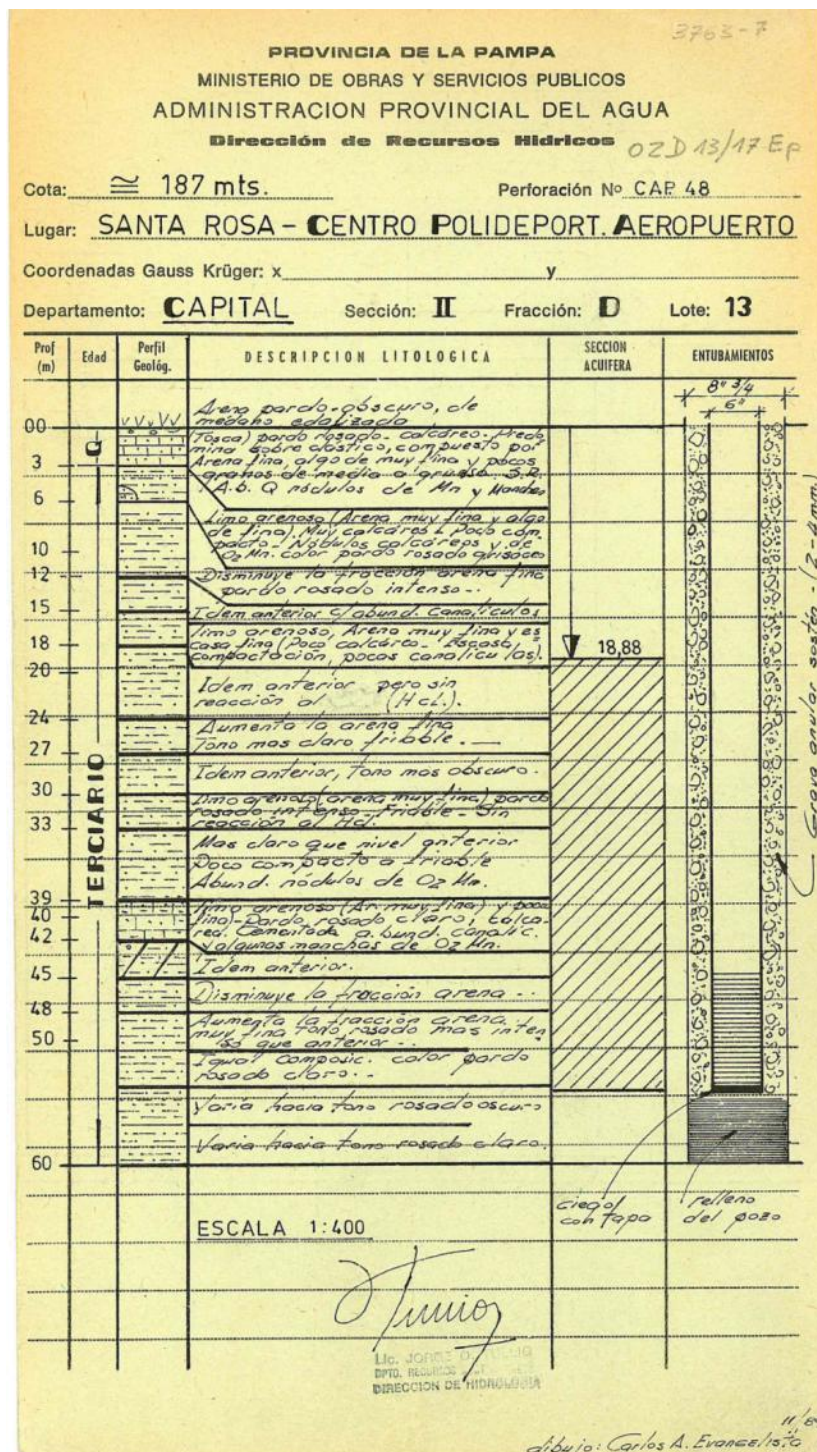 3763-7
PROVINCIA DE LA PAMPA
MINISTERIO DE OBRAS Y SERVICIOS PUBLICOS
ADMINISTRACION PROVINCIAL DEL AGUA
Dirección de Recursos Hidricos
OZD 13/17 Ep
Cota: ≅ 187 mts.
Perforación Nº CAP. 48
Lugar: SANTA ROSA – CENTRO POLIDEPORT. AEROPUERTO
Coordenadas Gauss Krüger: x y
Departamento: CAPITAL Sección: II Fracción: D Lote: 13
Prof (m)
Edad
Perfil Geológ.
DESCRIPCION LITOLOGICA
SECCION ACUIFERA
ENTUBAMIENTOS
8" 3/4
6"
00
3
6
10
12
15
18
20
24
27
30
33
39
40
42
45
48
50
60
Q
TERCIARIO
Arena pardo-obscuro, de
médano edafizado
(Tosca) pardo rosado - calcáreo. Predo
mina sobre clástico, compuesto por
Arena fina, algo de muy fina y pocos
granos de media a gruesa. S.R.
A.b. Q nódulos de Mn y
Limo arenoso (Arena muy fina y algo
de fina). Muy calcáreo - Poco com
pacto - Nódulos calcáreos y de
O2 Mn. color pardo rosado grisaceo
Disminuye la fracción arena fina
pardo rosado intenso -..
Idem anterior c/abund. Canalículos
limo arenoso, Arena muy fina y es
casa fina (Poco calcáreo - Escasa
compactación, pocas canaliculas).
Idem anterior pero sin
reacción al (HcL).
Aumenta la arena fina
Tono mas claro friable. —
Idem anterior, tono mas obscuro.
Limo arenoso (arena muy fina) pardo
rosado intenso - Friable - Sin
reacción al Hcl.
Mas claro que nivel anterior
Poco compacto a friable
Abund. nódulos de O2 Mn.
limo arenoso (Ar. muy fina) y poca
fina) - Pardo rosado claro, calca-
reo. Cementada a.bund. canalic.
y algunas manchas de O2 Mn.
Idem anterior.
Disminuye la fracción arena -..
Aumenta la fracción arena
muy fina Tono rosado mas inten
so que anterior -..
Igual Composic. color pardo
rosado claro. -.
Varía hacia tono rosado oscuro
Varía hacia tono rosado claro.
18,88
Grava anular sostén - (2-4mm)
ciego/
con tapa
relleno
del pozo
ESCALA 1:400
Lic. JORGE
DPTO. RECURSOS
DIRECCION DE HIDROLOGIA
11/8
dibujo: Carlos A. Evangelista